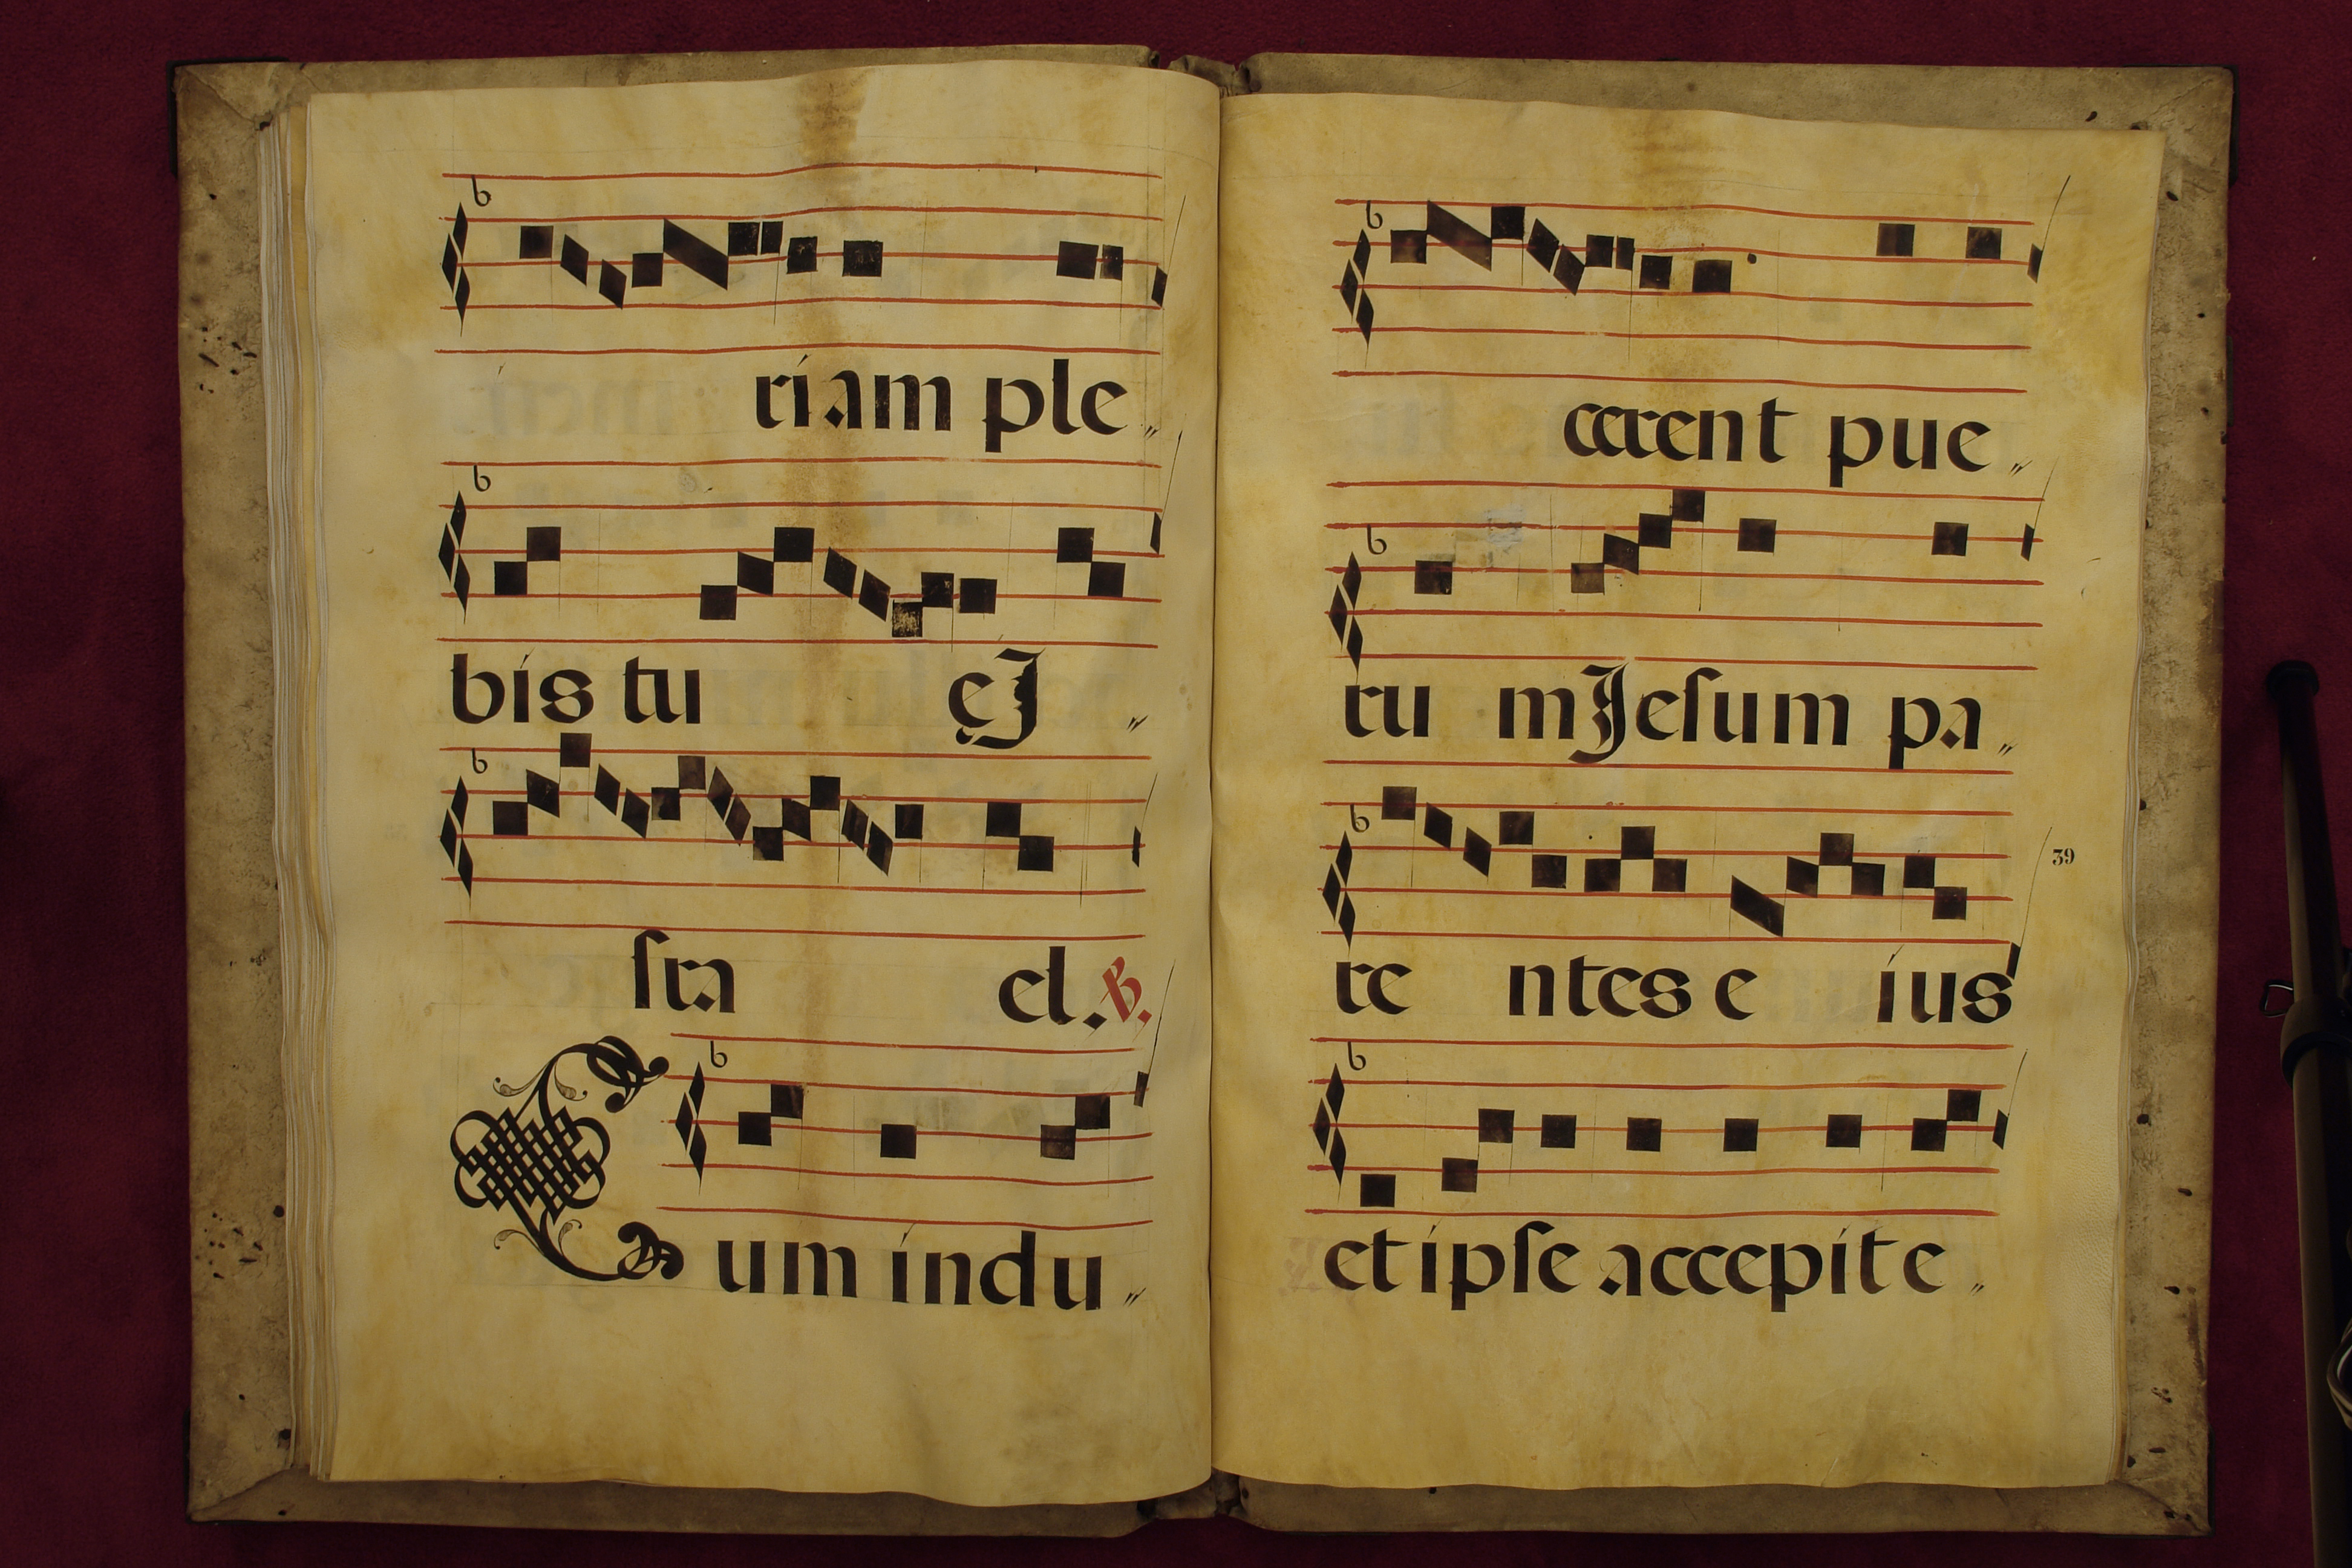 riam ple„
bis tu ę J„
sra el. R.
Cum indu„
cerent pue„
ru m Jesum pa„
39
re ntes e ius
et ipse accepit e„